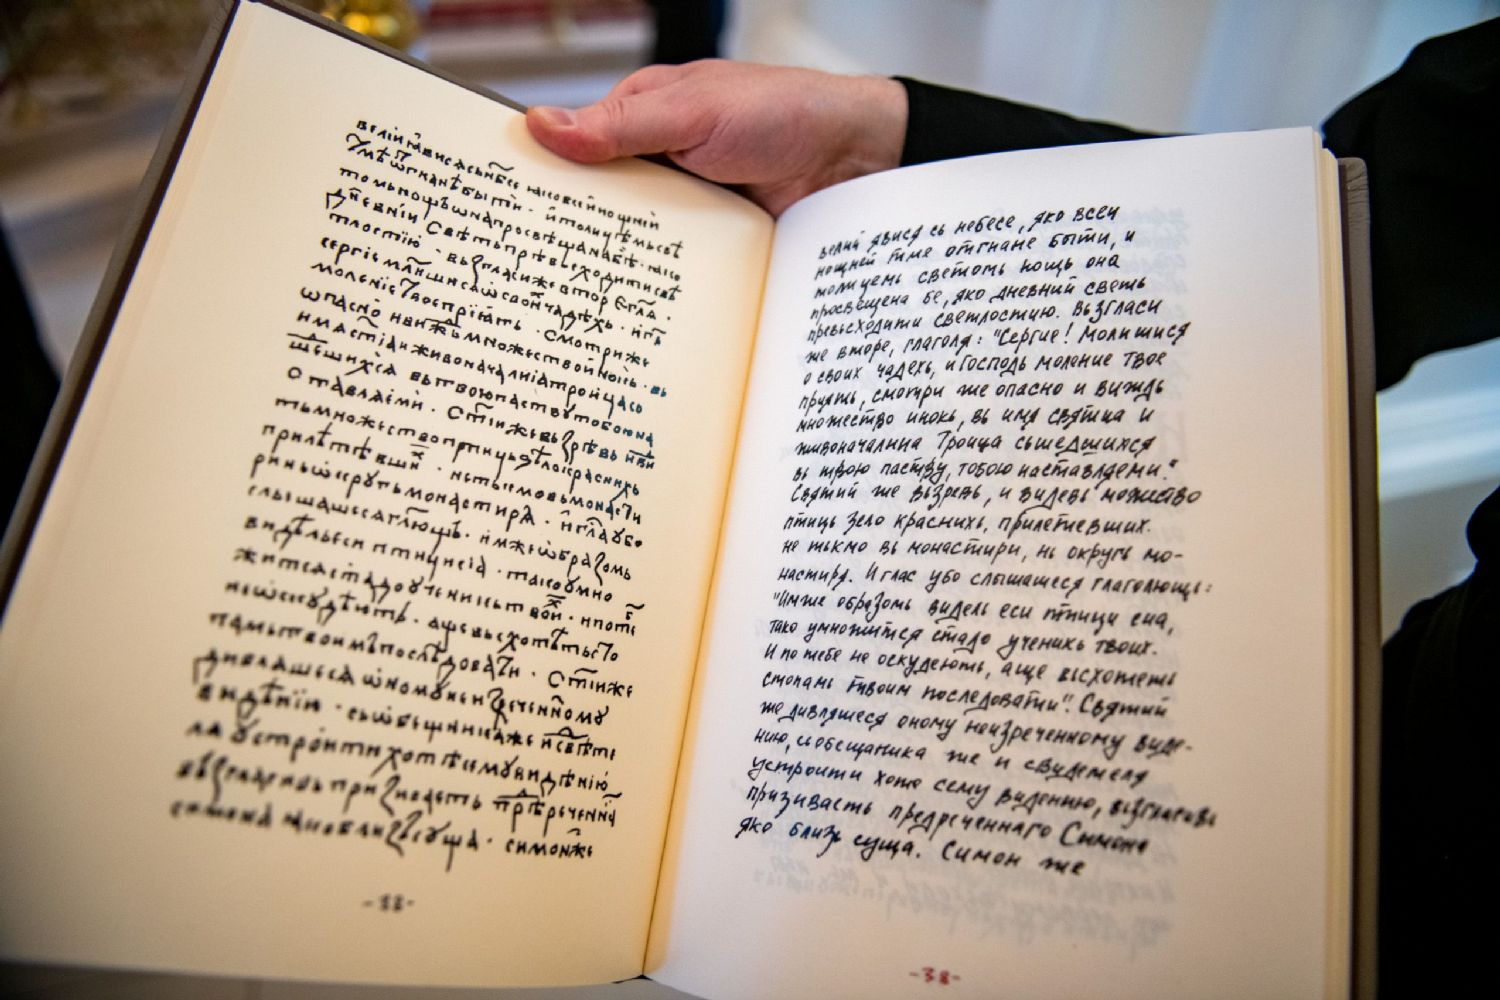 велїй ꙗвисѧ съ нб҃се ꙗко всей нощнїй
тмѣ ѿгнанѣ быти · и толицѣмъ свѣ
томъ нощь ѡна просвѣщана бѣ · ꙗко
дн҃евнїи свѣтъ превъсходити свѣ
тлостїю · възгласи же второе гл҃ѧ ·
сергїе мл҃ишисѧ ѡ своⷯ чадѣхъ · и гь҃
моленїе твое прїатъ · смотри же
ѡпасно и виждъ множество инокъ · въ
имѧ ст҃ыѧ и живоначалнїа тройца съ
шешихсѧ въ твою паству тобою на
ставлѧеми · ст҃ый же възрѣвъ и ви
тъ множество птицъ ѕѣло красныхъ
прилѣтѣвшиⷯ · не тъкмо въ монасти
ри нъ и ѡкрутъ монастирѧ · и гл҃а убо
слышашесѧ гл҃ющъ · имже ѡбразомъ
видѣлъ еси птицы сїа · тако умно
житсѧ стадо ученикъ твоиⷯ · и по теⷠ
не ѡскудѣютъ · аще въсхотѣтъ сто
памъ твоимъ послѣдовати · ст҃ый же
дивлѧшесѧ ѡному неизреченному
видѣнїю · съѡбещника же и свѣдѣте
лѧ устроити хотѧ сему видѣнїю
възгласивъ призиваеть прⷣѣреченнⷢ
симона ꙗко близъ суща · симон же
-38-
велий явися съ небесе, яко всей
нощней тме отгнане быти, и
толицемъ светомъ нощь она
просвещена бе, яко дневний светъ
превъсходити светлостию. Възгласи
же второе, глаголя: "Сергие! Молишися
о своих чадехъ, и Господь моление твое
приятъ, смотри же опасно и виждь
множество инокъ, въ имя святиа и
живоначалниа Троица съшедшихся
въ твою паству, тобою наставляеми."
Святий же възревъ, и видевъ множство
птицъ зело краснихъ, прилетевших.
не тъкмо въ монастири, нь округъ мо-
настиря. И глас убо слышашеся глаголющь:
"Имже образомъ виделъ еси птици сиа,
тако умножится стадо ученикъ твоих.
И по тебе не оскудеютъ, аще въсхотетъ
стопамъ твоим последовати". Святий
же дивляшеся оному неизреченному виде-
нию, съобещника же и свидетеля
устроити хотя сему видению, възгласивъ
призиваетъ предреченнаго Симона
яко близъ суща. Симон же
-38-